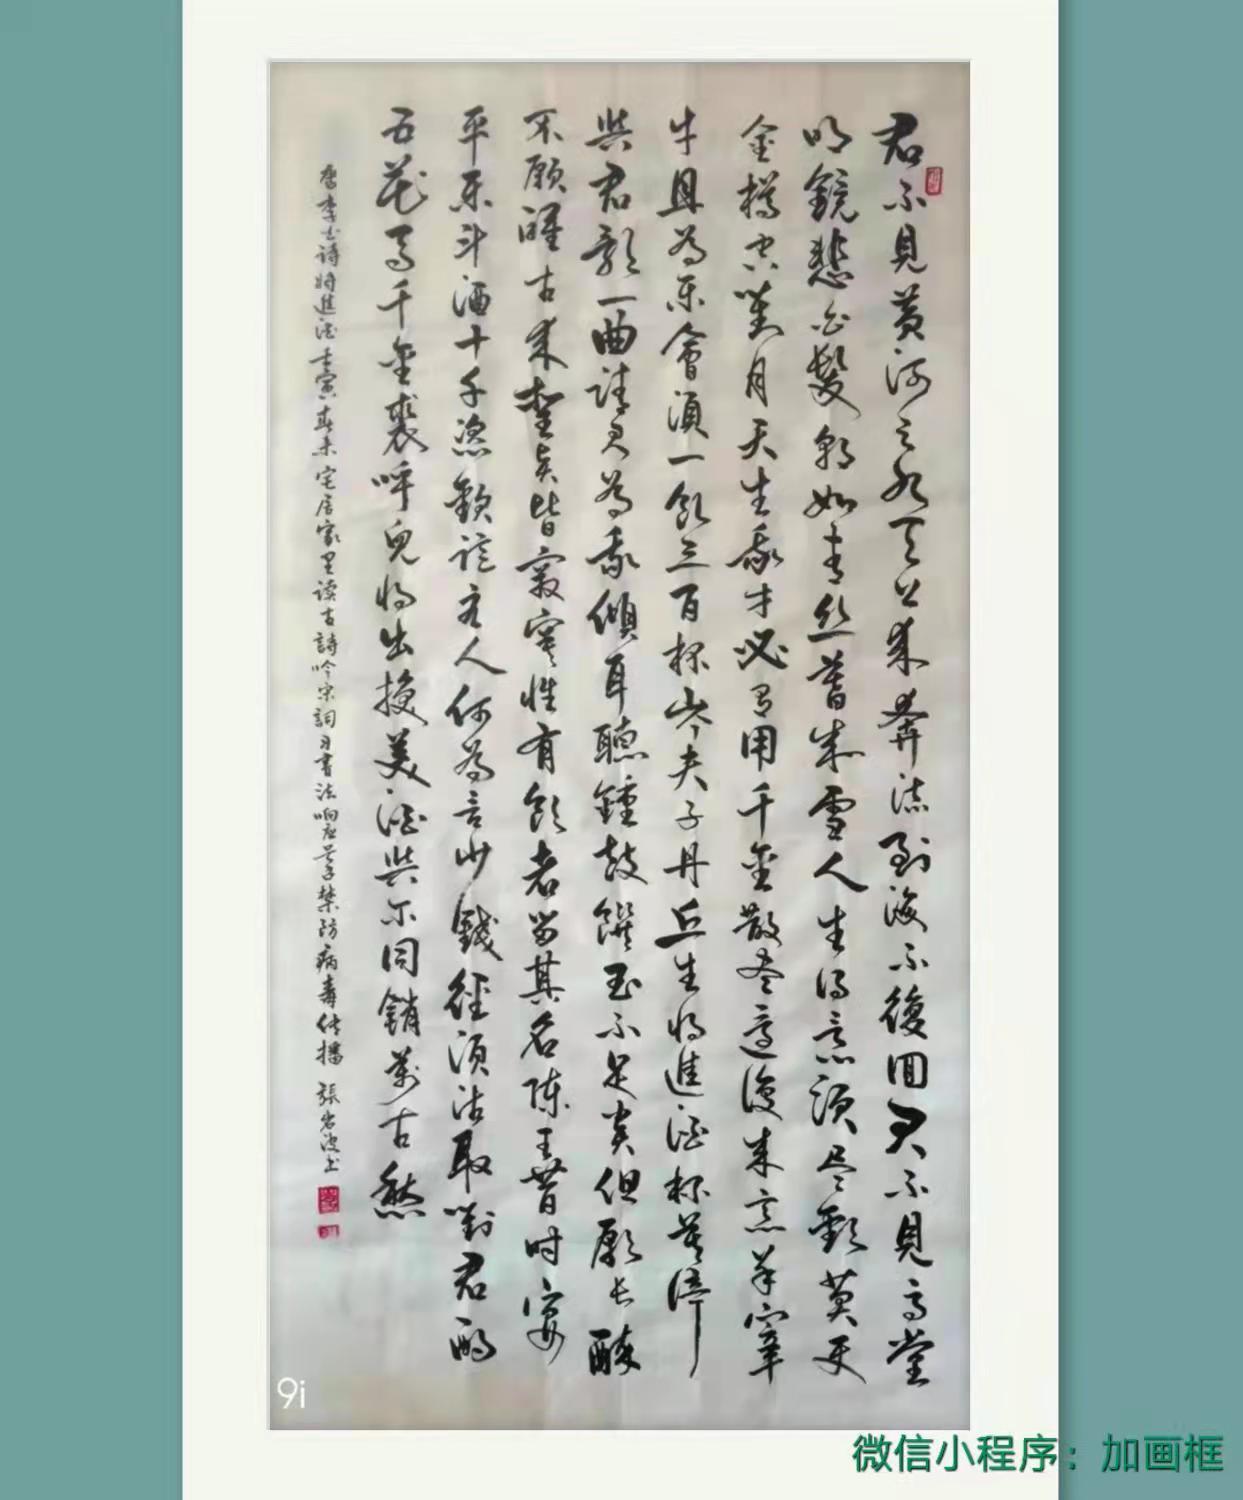 君不見黃河之水天上來奔流到海不復回君不見高堂
明鏡悲白髮朝如青絲暮成雪人生得意須尽歡莫使
金樽空對月天生我才必有用千金散尽還復來烹羊宰
牛且為樂會須一飲三百杯岑夫子丹丘生將進酒杯莫停
與君歌一曲請君為我傾耳聽鐘鼓饌玉不足貴但願長醉
不願醒古來聖賢皆寂寞惟有飲者留其名陳王昔時宴
平樂斗酒十千恣歡謔主人何為言少錢徑須沽取對君酌
五花馬千金裘呼兒將出換美酒與尔同銷萬古愁
李白詩將進酒壬寅春末宅居家里读古詩吟宋詞習書法响应封禁防病毒传播 張岩波书
9i
微信小程序：加画框